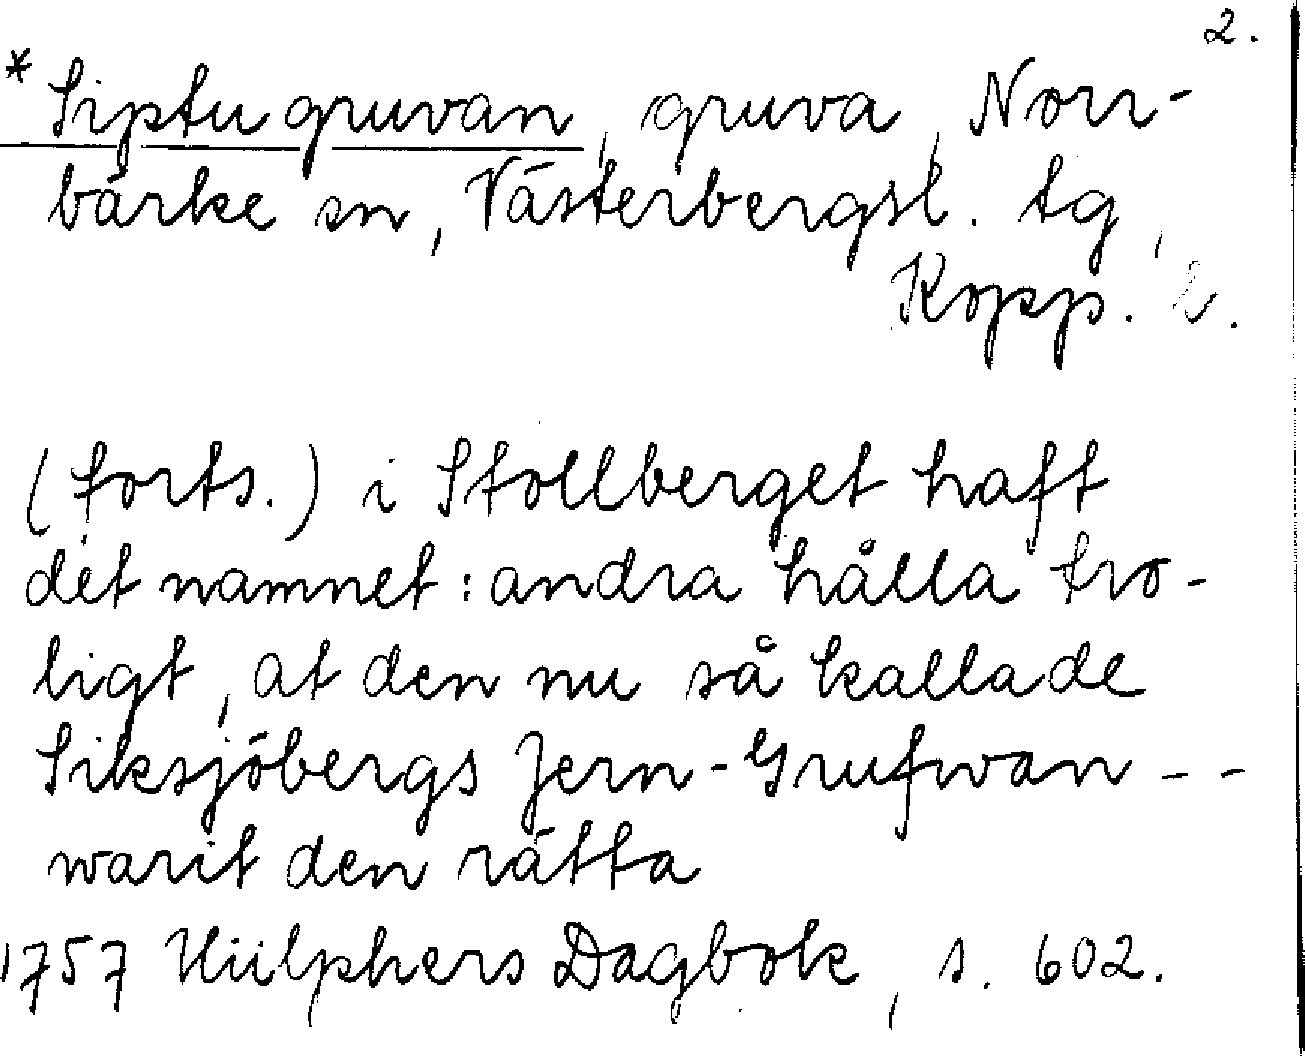 2.
* Siptugruvan, gruva, Norr-
bärke sn, Västerbergsl. tg,
Kopp. l.
(forts.) i Stollberget haft
det namnet: andra hålla tro-
ligt, at den nu så kallade
Siksjöbergs Jern-Grufwan --
warit den rätta
1757 Hülphers Dagbok, s. 602.